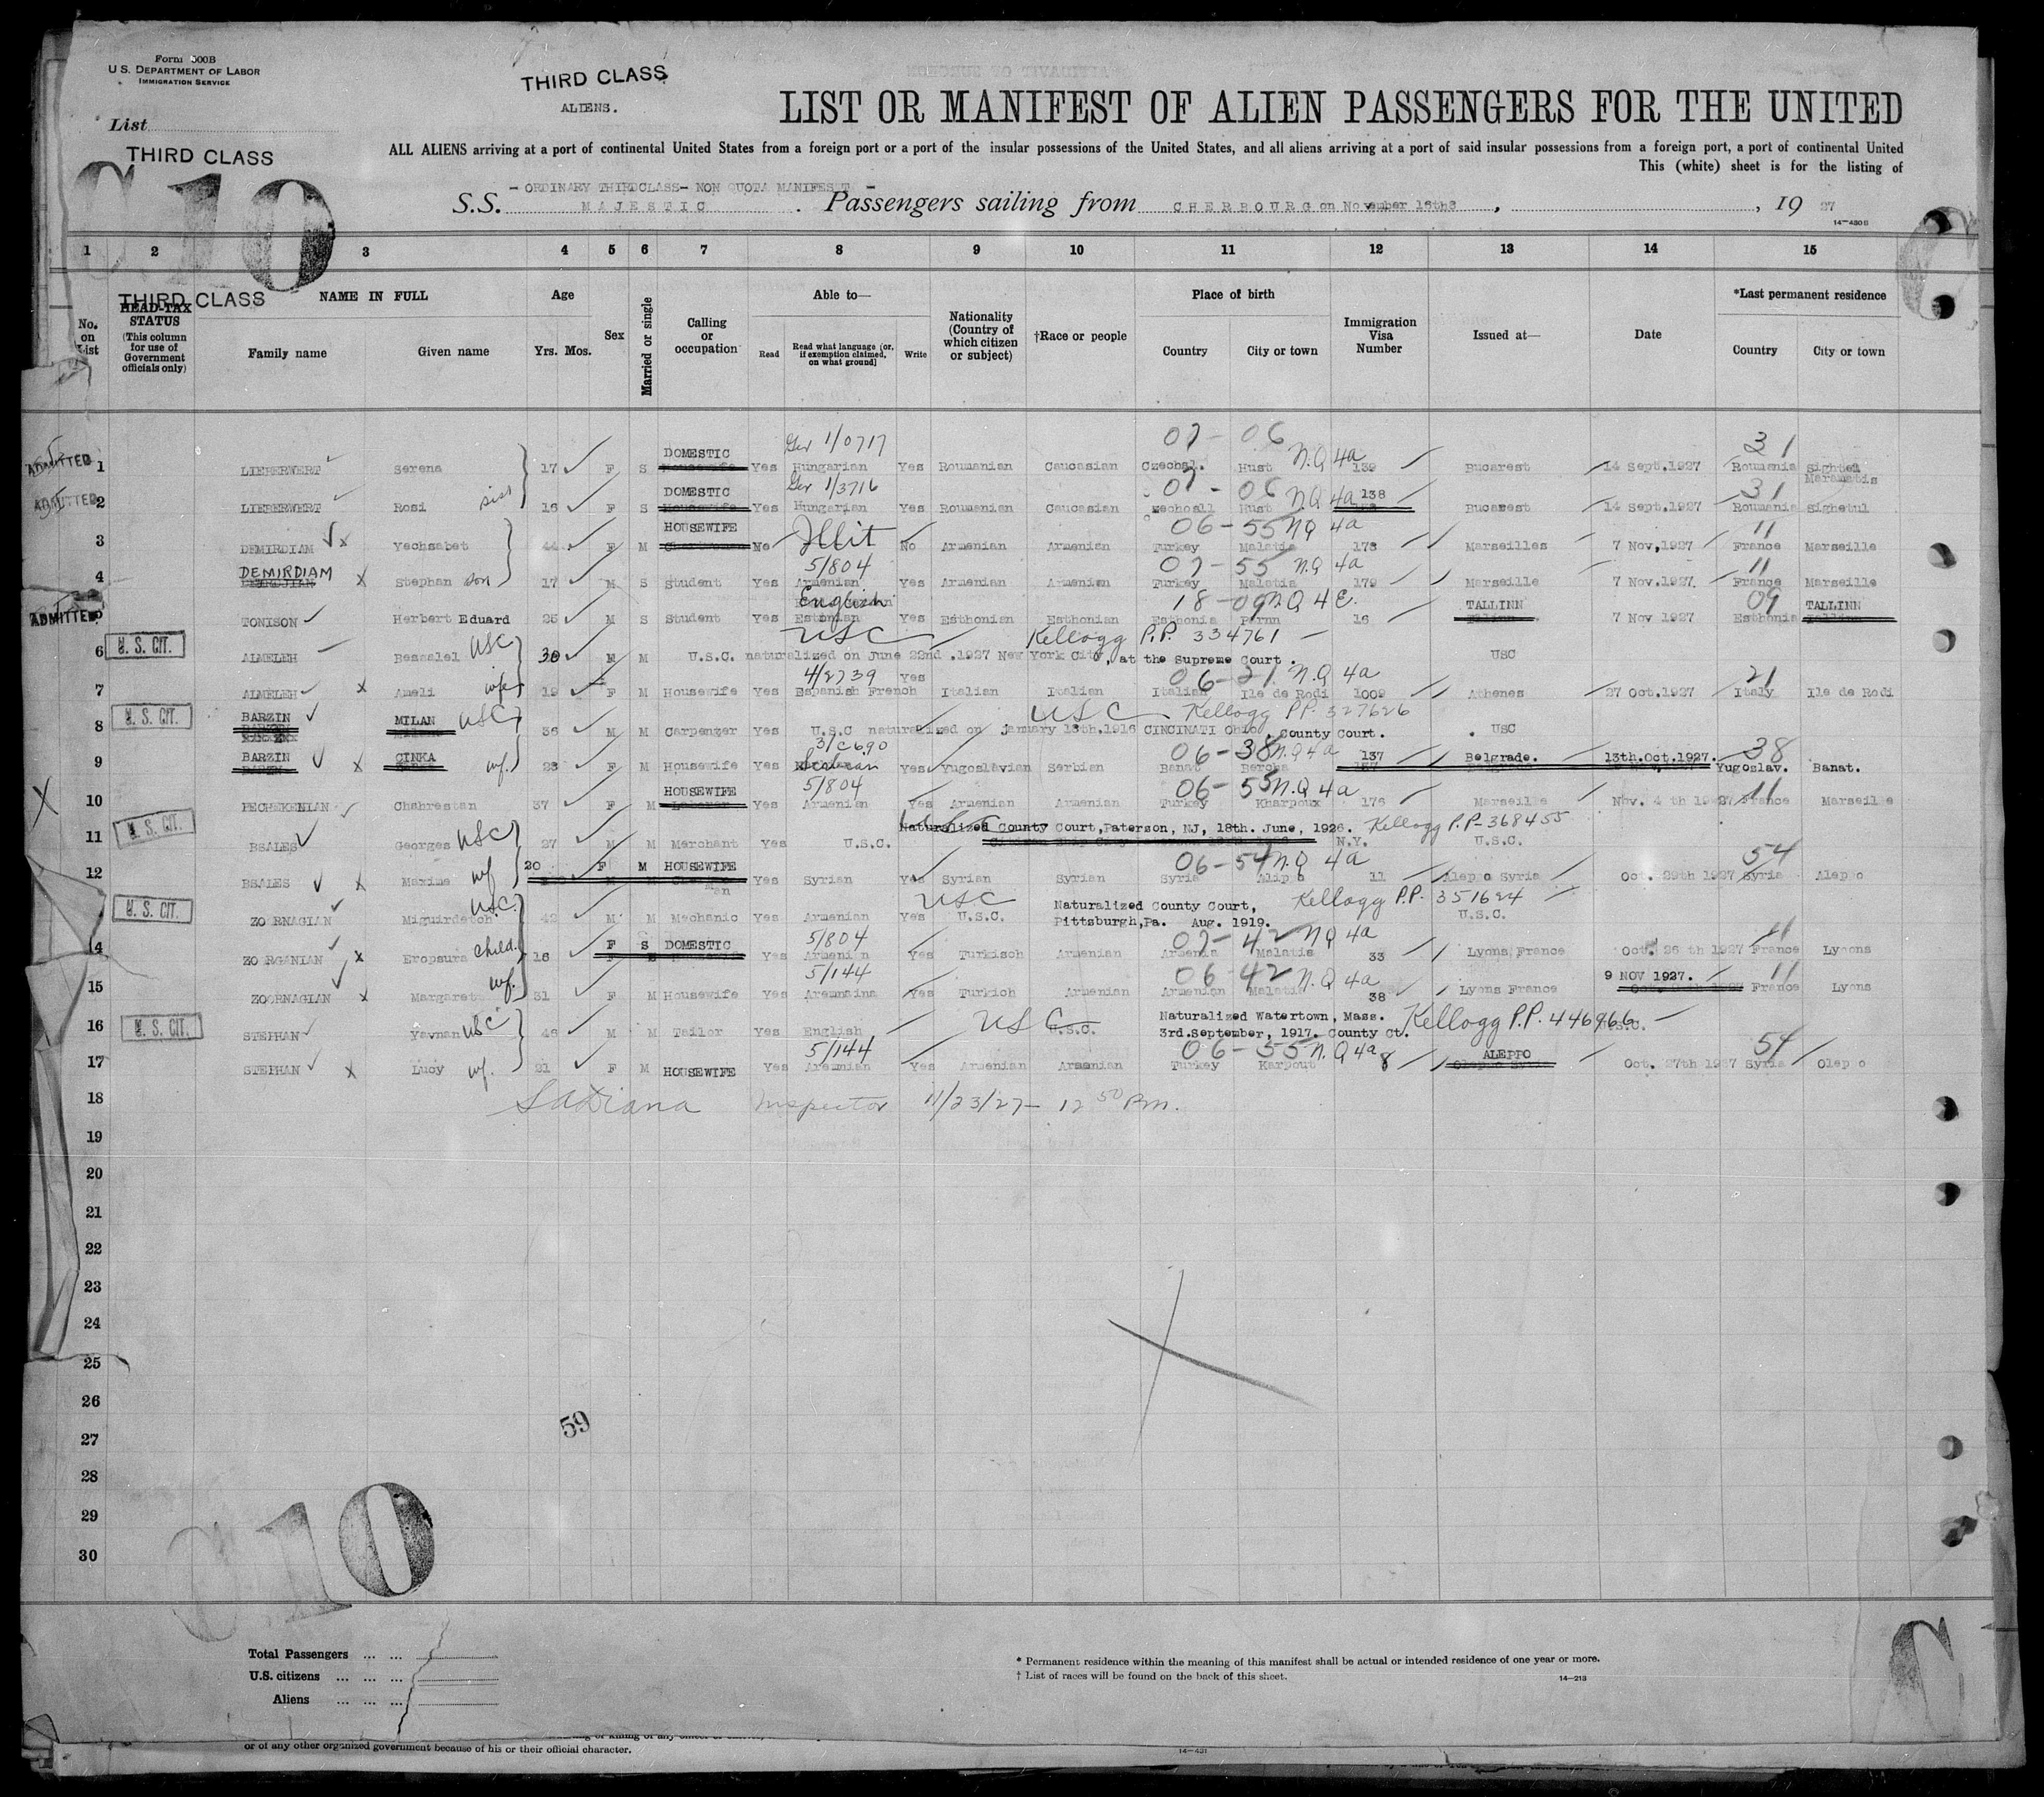 Form 500B
U.S. DEPARTMENT OF LABOR
IMMIGRATION SERVICE
THIRD CLASS
ALIENS.
List
THIRD CLASS
C 10
LIST OR MANIFEST OF ALIEN PASSENGERS FOR THE UNITED
ALL ALIENS arriving at a port of continental United States from a foreign port or a port of the insular possessions of the United States, and all aliens arriving at a port of said insular possessions from a foreign port, a port of continental United
This (white) sheet is for the listing of
- ORDINARY THIRDCLASS- NON QUOTA MANIFEST -
S.S. MAJESTIC. Passengers sailing from CHERBOURG on November 16th, 19 27
14-430B
1 2 3 4 5 6 7 8 9 10 11 12 13 14 15
THIRD CLASS
No. on List
HEAD-TAX STATUS (This column for use of Government officials only)
NAME IN FULL Family name Given name
Age Yrs. Mos.
Sex
Married or single
Calling or occupation
Able to— Read Read what language [or, if exemption claimed, on what ground] Write
Nationality (Country of which citizen or subject)
†Race or people
Place of birth Country City or town
Immigration Visa Number
Issued at—
Date
*Last permanent residence Country City or town
DOMESTIC Ger 1/0717 07 - 06 N.Q 4a 31
ADMITTED 1 LIEBERWERT Serena 17 F S Yes Hungarian Yes Roumanian Caucasian Czechsl. Hust 139 Bucarest 14 Sept.1927 Roumania Sighetul Maramatis
DOMESTIC Ger 1/3716 07 - 06 N.Q 4a 138 31
ADMITTED 2 LIEBERWERT Rosi siss 16 F S Housewife Yes Hungarian Yes Roumanian Caucasian Hust Bucarest 14 Sept.1927 Roumania Sighetul
HOUSEWIFE Illit 06-55 N.Q 4a 11
3 DEMIRDIAM Yechsabet 44 F M No No Armenian Armenian Turkey Malatia 178 Marseilles 7 Nov,1927 France Marseille
DEMIRDIAM 5/804 07-55 N.Q 4a 11
4 DEMIRJIAN Stephan son 17 M S Student Yes Armenian Yes Armenian Armenian Turkey Malatia 179 Marseille 7 Nov.1927. France Marseille
English 18-09 N.Q 4E. TALLINN 09 TALLINN
ADMITTED 5 TONISON Herbert Eduard 25 M S Student Yes Estonian Yes Esthonian Esthonian Esthonia Parnn 16 7 Nov 1927 Esthonia
U.S. CIT. USC USC Kellogg P.P. 334761
6 ALMELEH Bessalel 30 M M U.S.C. naturalized on June 22nd .1927 New York City, at the Supreme Court. USC
4/2739 Yes 06-21 N.Q 4a 21
7 ALMELEH Ameli wife 19 F Housewife Yes Espanish French Italian Italian Italian Ile de Rodi 1009 Athenes 27 Oct.1927 Italy Ile de Rodi
U.S. CIT. BARZIN MILAN USC USC Kellogg P.P. 327626
8 36 M M Carpenzer Yes U.S.C naturalized on january 18th,1916 CINCINATI Ohio, County Court. USC
31/2690 06-38 N.Q 4a 38
9 BARZIN CINKA wf. 28 F M Housewife Yes Serbian Yes Yugoslavian Serbian Banat 137 Belgrade. 13th.Oct.1927. Yugoslav. Banat.
HOUSEWIFE 5/804 06-55 N.Q 4a 11
10 PECHEKENIAN Chahrestan 37 F M Laborer Yes Armenian Yes Armenian Armenian Turkey Kharpoux 176 Marseille Nov. 4 th 1927 France Marseille
U.S. CIT. USC Naturalized County Court,Paterson, NJ, 18th. June, 1926. Kellogg P.P-368455
11 BSALES Georges 27 M M Merchant Yes U.S.C. N.Y. U.S.C.
20 F M HOUSEWIFE 06-54 N.Q 4a 54
12 BSALES Maxime wf Yes Syrian Yes Syrian Syrian Syria Aleppo 11 Aleppo Syria Oct. 29th 1927 Syria Aleppo
U.S. CIT. USC. USC Naturalized County Court, Kellogg P.P. 351624
ZOORNAGIAN Miguirdetch 42 M M Mechanic Yes Armenian Yes U.S.C. Pittsburgh,Pa. Aug. 1919. U.S.C.
F S DOMESTIC 5/804 07-42 N.Q 4a 11
14 ZOORGANIAN Eropsura child. 16 Yes Armenian Yes Turkisch Armenian Armenia Malatia 33 Lyons France Oct. 26 th 1927 France Lyons
wf. 5/144 06-42 N.Q 4a 9 NOV 1927. 11
15 ZOORNAGIAN Margaret 31 F M Housewife Yes Yes Turkich Armenian Armenian Malatia 38 Lyons France France Lyons
U.S. CIT. USC Naturalized Watertown, Mass. Kellogg P.P. 446966
16 STEPHAN Yavnan USC 46 M M Tailor Yes English U.S.C. 3rd.September, 1917. County Ct. U.S.C.
5/144 06-55 N.Q 4a ALEPPO 54
17 STEPHAN Lucy wf. 21 F M HOUSEWIFE Yes Yes Armenian Armenian Turkey Karpout 8 Oct. 27th 1927 Syria Oleppo
18 Inspector 11/23/27- 12 50 P.m.
19
20
21
22
23
24
25
26
59
27
28
29
30
C 10
Total Passengers ... ...
U.S. citizens ... ... ...
Aliens ... ... ...
* Permanent residence within the meaning of this manifest shall be actual or intended residence of one year or more.
† List of races will be found on the back of this sheet.
14-213
or of any other organized government because of his or their official character.
14-421